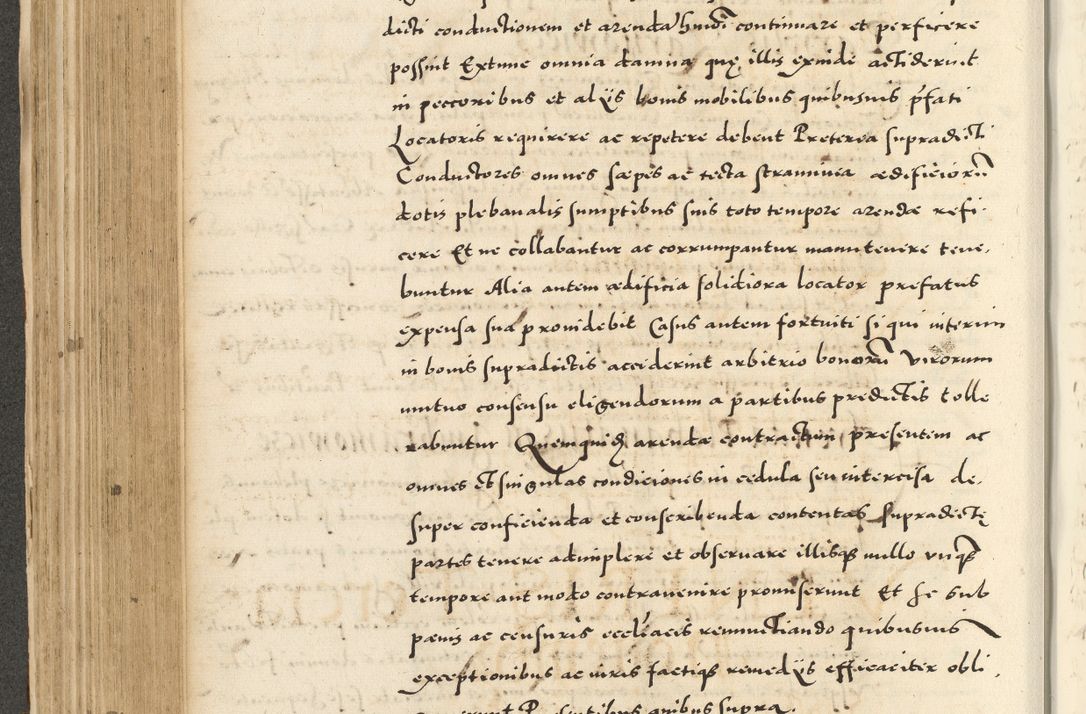 dicti conductionem et arenda hmōi continuare et perficere
possint Extunc omnia damna quę illis exinde acciderint
in peccoribus et alijs bonis mobilibus quibusuis p̄fati
Locatoris requirere ac repetere debent Preterea supradicti
Conductores omnes sæpes ac tecta straminea ædificiorū
dotis plebanalis sumptibus suis toto tempore arendæ refi-
cere Et ne collabantur ac corrumpantur manutenere tene-
buntur Alia autem ædificia solidiora locator prefatus
expensa sua prouidebit Casus autem fortuiti si qui interim
in bonis supradictis acciderint arbitrio bonorū virorum
mutuo consensu eligendorum a partibus predictis tolle
rabuntur Quemquidē arendæ contractum presentem ac
omnes et singulas condiciones in cedula seu intercisa de-
super conficienda et conscribenda contentas supradictę
partes tenere adimplere et obseruare illisq̨ nullo vnq̄
tempore aut modo contrauenire promiserunt Et se sub
pænis ac censuris eccl̄iacis renunctiando quibusuis
exceptionibus ac iuris factiq̨ remedijs efficaciter obli-
Presentibus quibus supra.